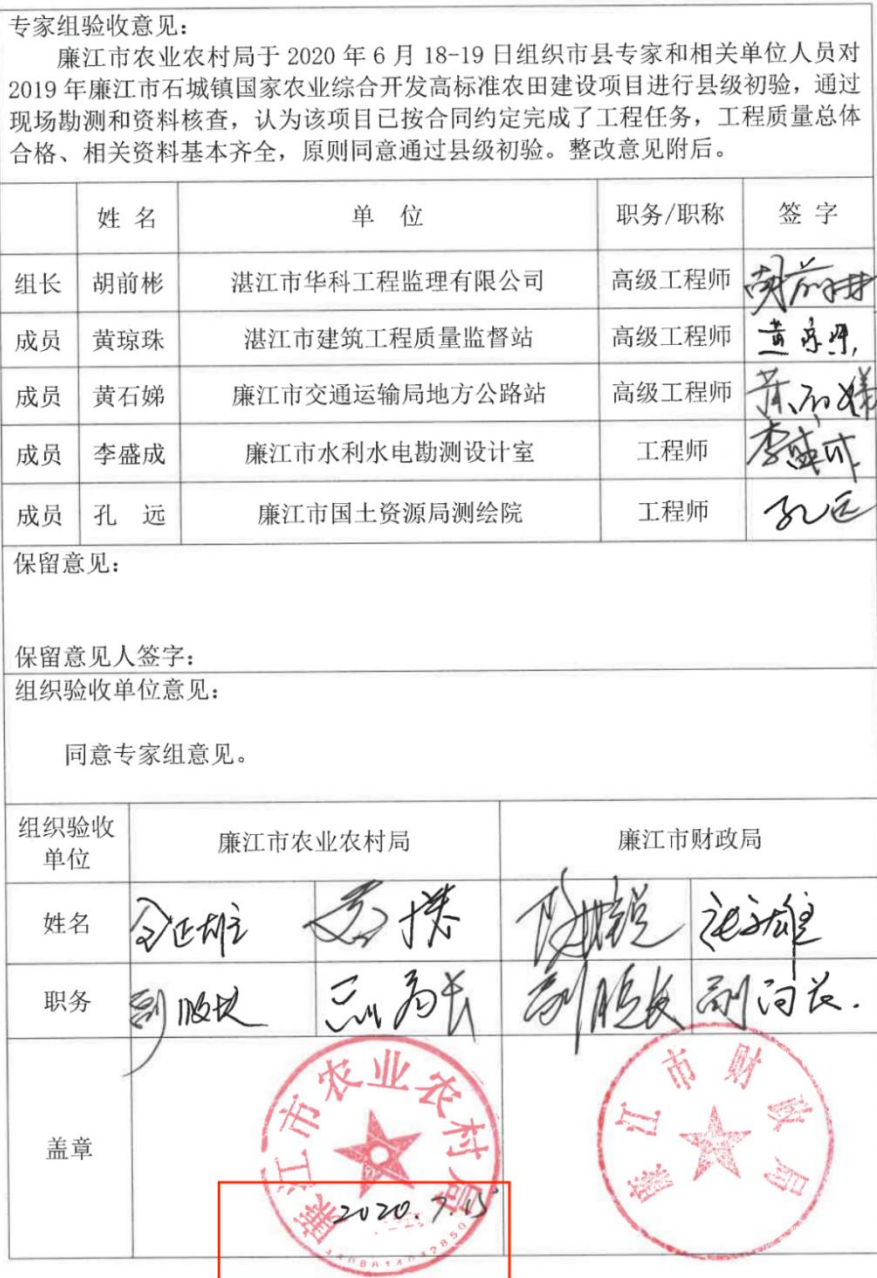 专家组验收意见：
廉江市农业农村局于 2020 年 6 月 18-19 日组织市县专家和相关单位人员对
2019 年廉江市石城镇国家农业综合开发高标准农田建设项目进行县级初验，通过
现场勘测和资料核查，认为该项目已按合同约定完成了工程任务，工程质量总体
合格、相关资料基本齐全，原则同意通过县级初验。整改意见附后。
姓 名 单 位 职务/职称 签 字
组长 胡前彬 湛江市华科工程监理有限公司 高级工程师 胡前彬
成员 黄琼珠 湛江市建筑工程质量监督站 高级工程师 黄琼珠
成员 黄石娣 廉江市交通运输局地方公路站 高级工程师 黄石娣
成员 李盛成 廉江市水利水电勘测设计室 工程师 李盛成
成员 孔 远 廉江市国土资源局测绘院 工程师 孔远
保留意见：
保留意见人签字：
组织验收单位意见：
同意专家组意见。
组织验收
单位 廉江市农业农村局 廉江市财政局
姓名
职务 副股长 副局长 副股长 副局长
盖章
廉江市农业农村局
2020.7.15
廉江市财政局